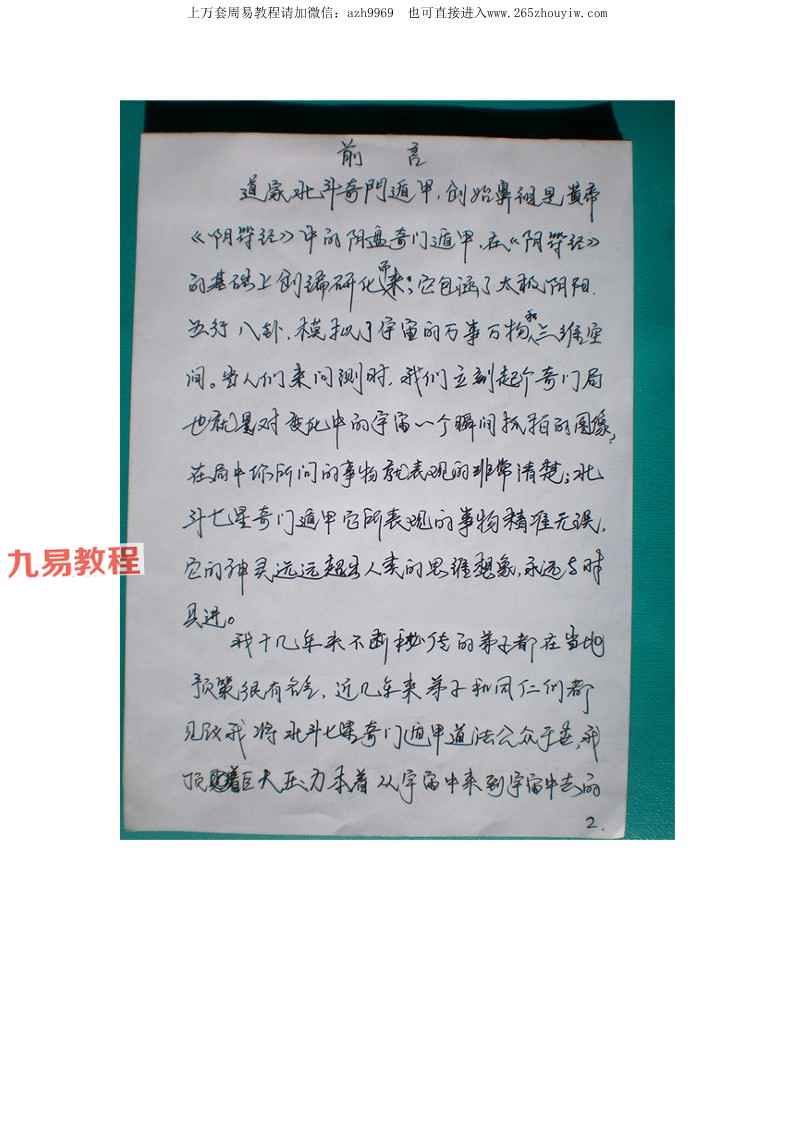 上万套周易教程请加微信：azh9969 也可直接进入www.265zhouyiw.com
前 言
道家北斗奇門遁甲，创始鼻祖是黄帝
《阴符经》中的阴盘奇门遁甲，在《阴符经》
的基础上创编研化而来；它包涵了太极阴阳．
五行八卦，模拟了宇宙的万事万物和三维空
间。当人们来问测时，我们立刻起个奇门局
也就是对变化中的宇宙一个瞬间抓拍的图像，
在局中你所问的事物就表现的非常清楚；北
斗七星奇门遁甲它所表现的事物精准无误，
九易教程
它的神灵远远超出人类的思维想象，永远与时
具进。
我十几年来不断秘传的弟子都在当地
预策很有名气，近几年来弟子和同仁们都
见议我将北斗七星奇门遁甲道法公众于世，我
顶着巨大压力本着从宇宙中来到宇宙中去的
2.